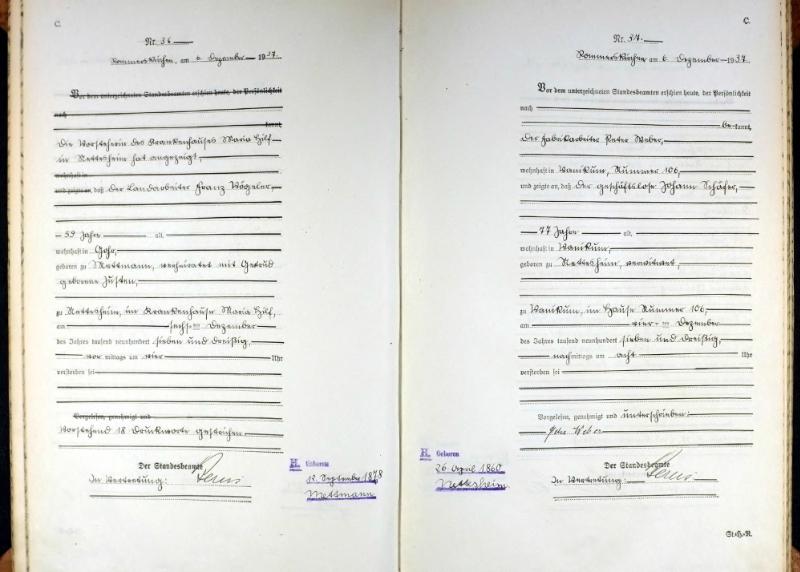 C.
Nr. 36
Rommerskirchen, am 6 Dezember 1937.
Vor dem unterzeichneten Standesbeamten erschien heute, der Persönlichkeit
nach
kannt,
Die Vorsteherin des Krankenhauses Maria Hilf
in Nettesheim hat angezeigt,
wohnhaft in
und zeigte an, daß der Landarbeiter Franz Vögeler,
59 Jahre alt,
wohnhaft in Gohr,
geboren zu Mettmann, verheiratet mit Gertrud
geborene Justen,
zu Nettesheim, im Krankenhause Maria Hilf,
am sechsten Dezember
des Jahres tausend neunhundert sieben und dreißig,
vor mittags um vier Uhr
verstorben sei
Vorgelesen, genehmigt und
Vorstehend 18 Druckworte gestrichen
Der Standesbeamte
In Vertretung:
H. Geboren
September 1878
Mettmann
C.
Nr. 37.
Rommerskirchen am 6 Dezember 1937
Vor dem unterzeichneten Standesbeamten erschien heute, der Persönlichkeit
nach
be kannt,
der Fabrikarbeiter Peter Weber,
wohnhaft in Vanikum, Nummer 106,
und zeigte an, daß der geschäftslose Johann Schäfer,
77 Jahre alt,
wohnhaft in Vanikum,
geboren zu Nettesheim, verwitwet,
zu Vanikum, im Hause Nummer 106,
am vierten Dezember
des Jahres tausend neunhundert sieben und dreißig,
nachmittags um acht Uhr
verstorben sei
Vorgelesen, genehmigt und unterschrieben:
Peter Weber
Der Standesbeamte
In Vertretung:
H. Geboren
26 April 1860
Nettesheim
St.H.R.